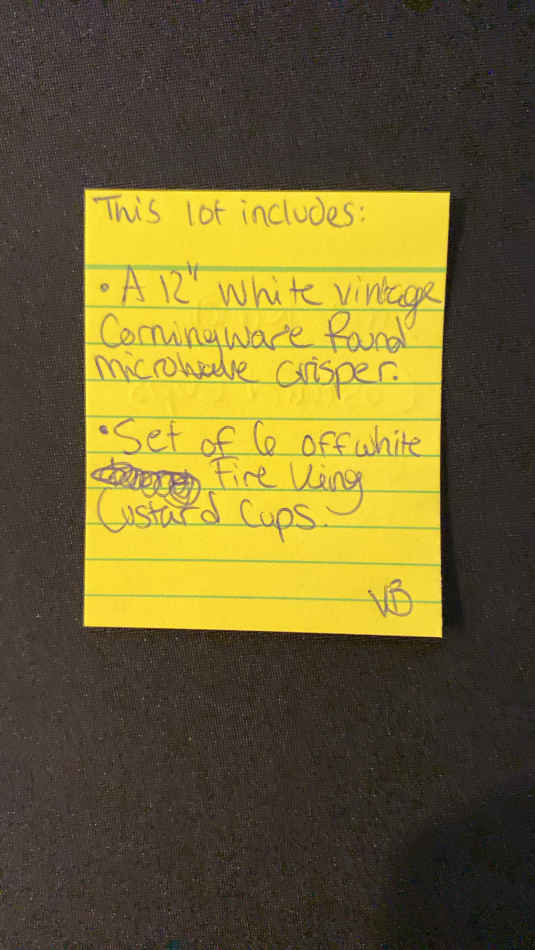 This lot includes:
• A 12" white vintage
Corningware Round
microwave crisper.
• Set of 6 off white
Fire King
Custard Cups.
VB